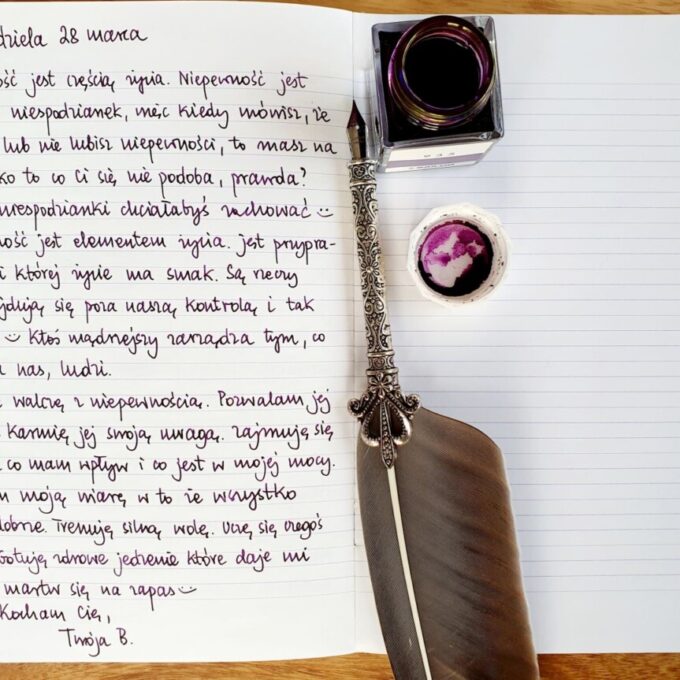 dziela 28 marca
ość jest częścią życia. Niepewność jest
niespodzianek, więc kiedy mówisz, że
lub nie lubisz niepewności, to masz na
ko to co Ci się nie podoba, prawda?
niespodzianki chciałabyś zachować
ność jest elementem życia. Jest przypra-
i której życie ma smak. Są rzeczy
jdują się poza naszą kontrolą i tak
Ktoś mądrzejszy zarządza tym, co
nas, ludzi.
walczę z niepewnością. Pozwalam jej
karmię jej swoją uwagą. Zajmuję się
co mam wpływ i co jest w mojej mocy.
moją wiarę w to że wszystko
dobrze. Trenuję silną wolę. Uczę się czegoś
Gotuję zdrowe jedzenie które daje mi
martw się na zapas
Kocham Cię,
Twoja B.